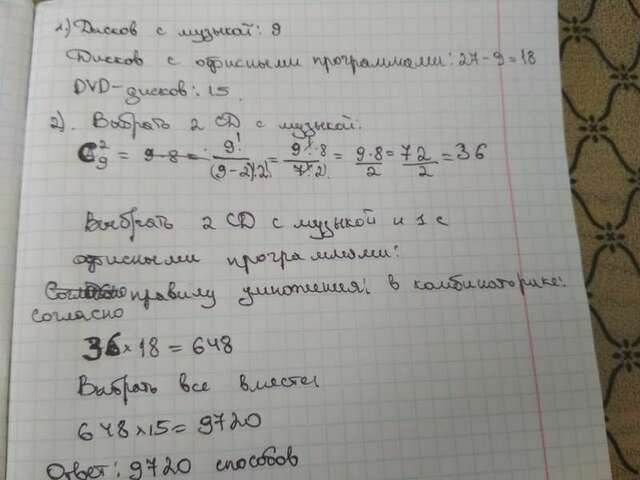 1) Дисков с музыкой: 9
Дисков с офисными программами: 27-9=18
DVD-дисков: 15.
2). Выбрать 2 CD с музыкой:
C₉² = 9·8 = 9!/(9-2)!·2! = 9!·8/7!·2! = 9·8/2 = 72/2 = 36
Выбрать 2 CD с музыкой и 1 с
офисными программами:
правилу умножения; в комбинаторике:
согласно
36×18=648
Выбрать все вместе:
648×15=9720
Ответ: 9720 способов